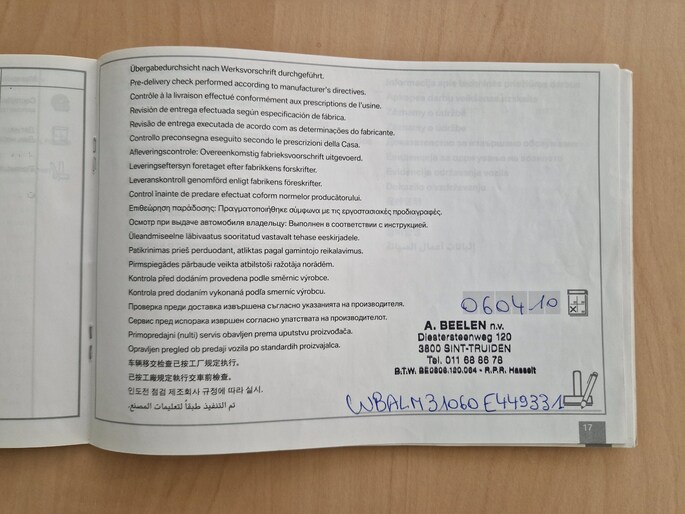 Übergabedurchsicht nach Werksvorschrift durchgeführt.
Pre-delivery check performed according to manufacturer's directives.
Contrôle à la livraison effectué conformément aux prescriptions de l'usine.
Revisión de entrega efectuada según especificación de fábrica.
Revisão de entrega executada de acordo com as determinações do fabricante.
Controllo preconsegna eseguito secondo le prescrizioni della Casa.
Afleveringscontrole: Overeenkomstig fabrieksvoorschrift uitgevoerd.
Leveringseftersyn foretaget efter fabrikkens forskrifter.
Leveranskontroll genomförd enligt fabrikens föreskrifter.
Control înainte de predare efectuat coform normelor producătorului.
Επιθεώρηση παράδοσης: Πραγματοποιήθηκε σύμφωνα με τις εργοστασιακές προδιαγραφές.
Осмотр при выдаче автомобиля владельцу: Выполнен в соответствии с инструкцией.
Üleandmiseelne läbivaatus sooritatud vastavalt tehase eeskirjadele.
Patikrinimas prieš perduodant, atliktas pagal gamintojo reikalavimus.
Pirmspiegādes pārbaude veikta atbilstoši ražotāja norādēm.
Kontrola před dodáním provedena podle směrnic výrobce.
Kontrola pred dodaním vykonaná podľa smerníc výrobcu.
Проверка преди доставка извършена съгласно указанията на производителя.
Сервис пред испорака извршен согласно упатствата на производителот.
Primopredajni (nulti) servis obavljen prema uputstvu proizvođača.
Opravljen pregled ob predaji vozila po standardih proizvajalca.
车辆移交检查已按工厂规定执行。
已按工廠規定執行交車前檢查。
인도전 점검 제조회사 규정에 따라 실시.
تم التنفيذ طبقاً لتعليمات المصنع.
060410
A. BEELEN n.v.
Diestersteenweg 120
3800 SINT-TRUIDEN
Tel. 011 68 86 78
B.T.W. BE0808.120.064 - R.P.R. Hasselt
WBALM31060E449331
17